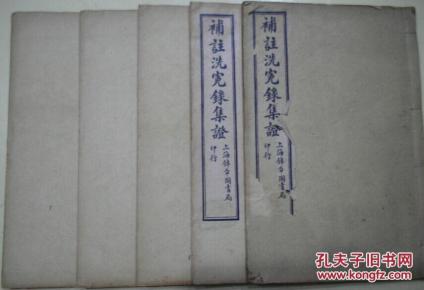 補註洗冤錄集證
上海錦章圖書局
印行
補註洗冤錄集證
上海錦章圖書局
印行
孔夫子旧书网
kongfz.com